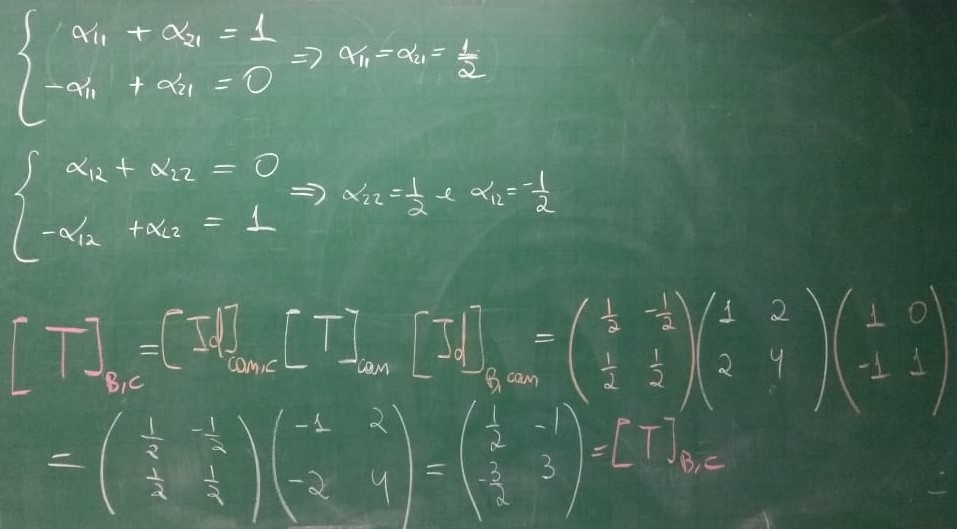 α₁₁ + α₂₁ = 1
-α₁₁ + α₂₁ = 0 ⇒ α₁₁ = α₂₁ = 1/2
α₁₂ + α₂₂ = 0
-α₁₂ + α₂₂ = 1 ⇒ α₂₂ = 1/2 e α₁₂ = -1/2
[T]B,C = [Id]can,C [T]can [Id]B,can = (1/2 -1/2; 1/2 1/2) (1 2; 2 4) (1 0; -1 1)
= (1/2 -1/2; 1/2 1/2) (-1 2; -2 4) = (1/2 -1; -3/2 3) = [T]B,C